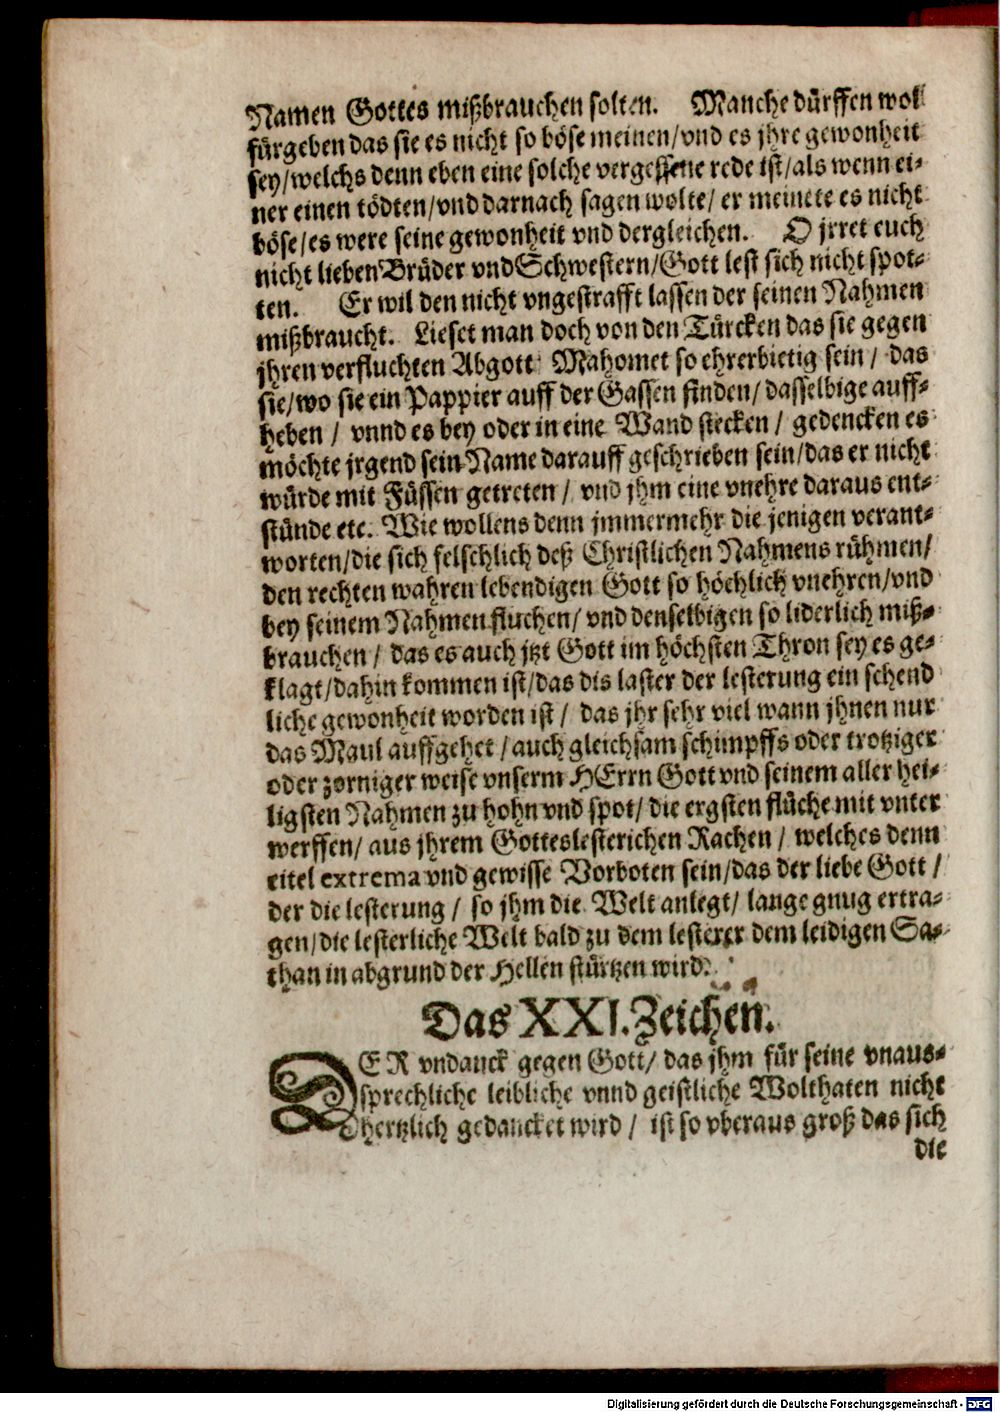 Namen Gottes mißbrauchen solten. Manche dürffen wol
fürgeben das sie es nicht so böse meinen/vnd es jhre gewonheit
sey/welchs denn eben eine solche vergessene rede ist/als wenn ei-
ner einen tödten/vnd darnach sagen wolte/ er meinete es nicht
böse/es were seine gewonheit vnd dergleichen. O jrret euch
nicht lieben Brüder vnd Schwestern/Gott lest sich nicht spot-
ten. Er wil den nicht vngestrafft lassen der seinen Nahmen
mißbraucht. Lieset man doch von den Türcken das sie gegen
jhren verfluchten Abgott Mahomet so ehrerbietig sein/ das
sie/wo sie ein Pappier auff der Gassen finden/dasselbige auff-
heben/ vnnd es bey oder in eine Wand stecken/ gedencken es
möchte jrgend sein Name darauff geschrieben sein/das er nicht
würde mit Füssen getreten/ vnd jhm eine vnehre daraus ent-
stünde etc. Wie wollens denn jmmermehr die jenigen verant-
worten/die sich felschlich deß Christlichen Nahmens rühmen/
den rechten wahren lebendigen Gott so höchlich vnehren/vnd
bey seinem Nahmen fluchen/ vnd denselbigen so liderlich miß-
brauchen/ das es auch jtzt Gott im höchsten Thron sey es ge-
klagt/dahin kommen ist/das dis laster der lesterung ein schend
liche gewonheit worden ist/ das jhr sehr viel wann jhnen nur
das Maul auffgehet/auch gleichsam schimpffs oder trotziger
oder zorniger weise vnserm HErrn Gott vnd seinem aller hei-
ligsten Nahmen zu hohn vnd spot/ die ergsten flüche mit vnter
werffen/ aus jhrem Gotteslesterichen Rachen/ welches denn
eitel extrema vnd gewisse Vorboten sein/das der liebe Gott/
der die lesterung/ so jhm die Welt anlegt/ lange gnug ertra-
gen/die lesterliche Welt bald zu dem lesterer dem leidigen Sa-
than in abgrund der Hellen stürtzen wird.
Das XXI. Zeichen.
DER vndanck gegen Gott/ das jhm für seine vnaus-
sprechliche leibliche vnnd geistliche Wolthaten nicht
hertzlich gedancket wird/ ist so vberaus groß das sich
die
Digitalisierung gefördert durch die Deutsche Forschungsgemeinschaft - DFG